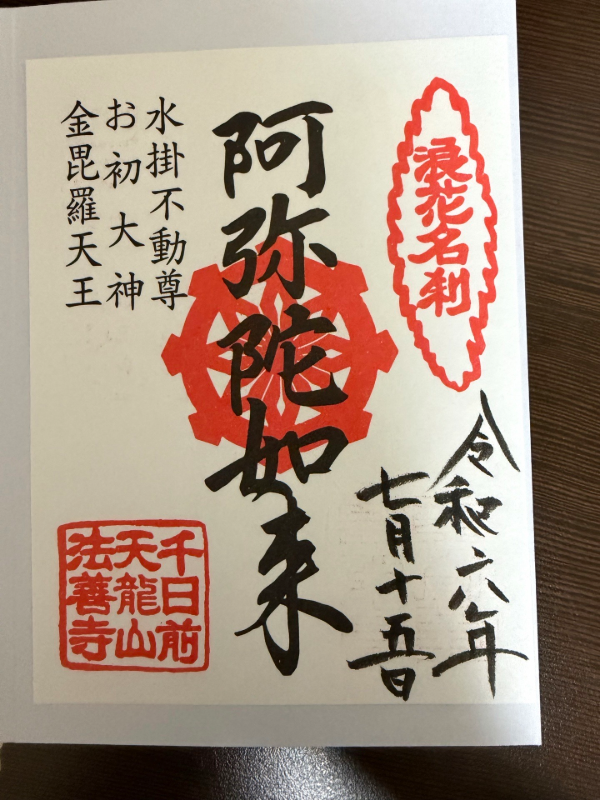 浪花名刹
令和六年
七月十五日
阿弥陀如来
水掛不動尊
お初大神
金毘羅天王
千日前
天龍山
法善寺